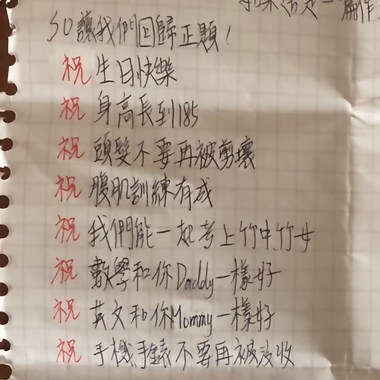 SO讓我們回歸正題!
祝 生日快樂
祝 身高長到185
祝 頭髮不要再被剪壞
祝 腹肌訓練有成
祝 我們能一起考上竹中竹女
祝 數學和你Daddy一樣好
祝 英文和你Mommy一樣好
祝 手機手錶不要再被沒收